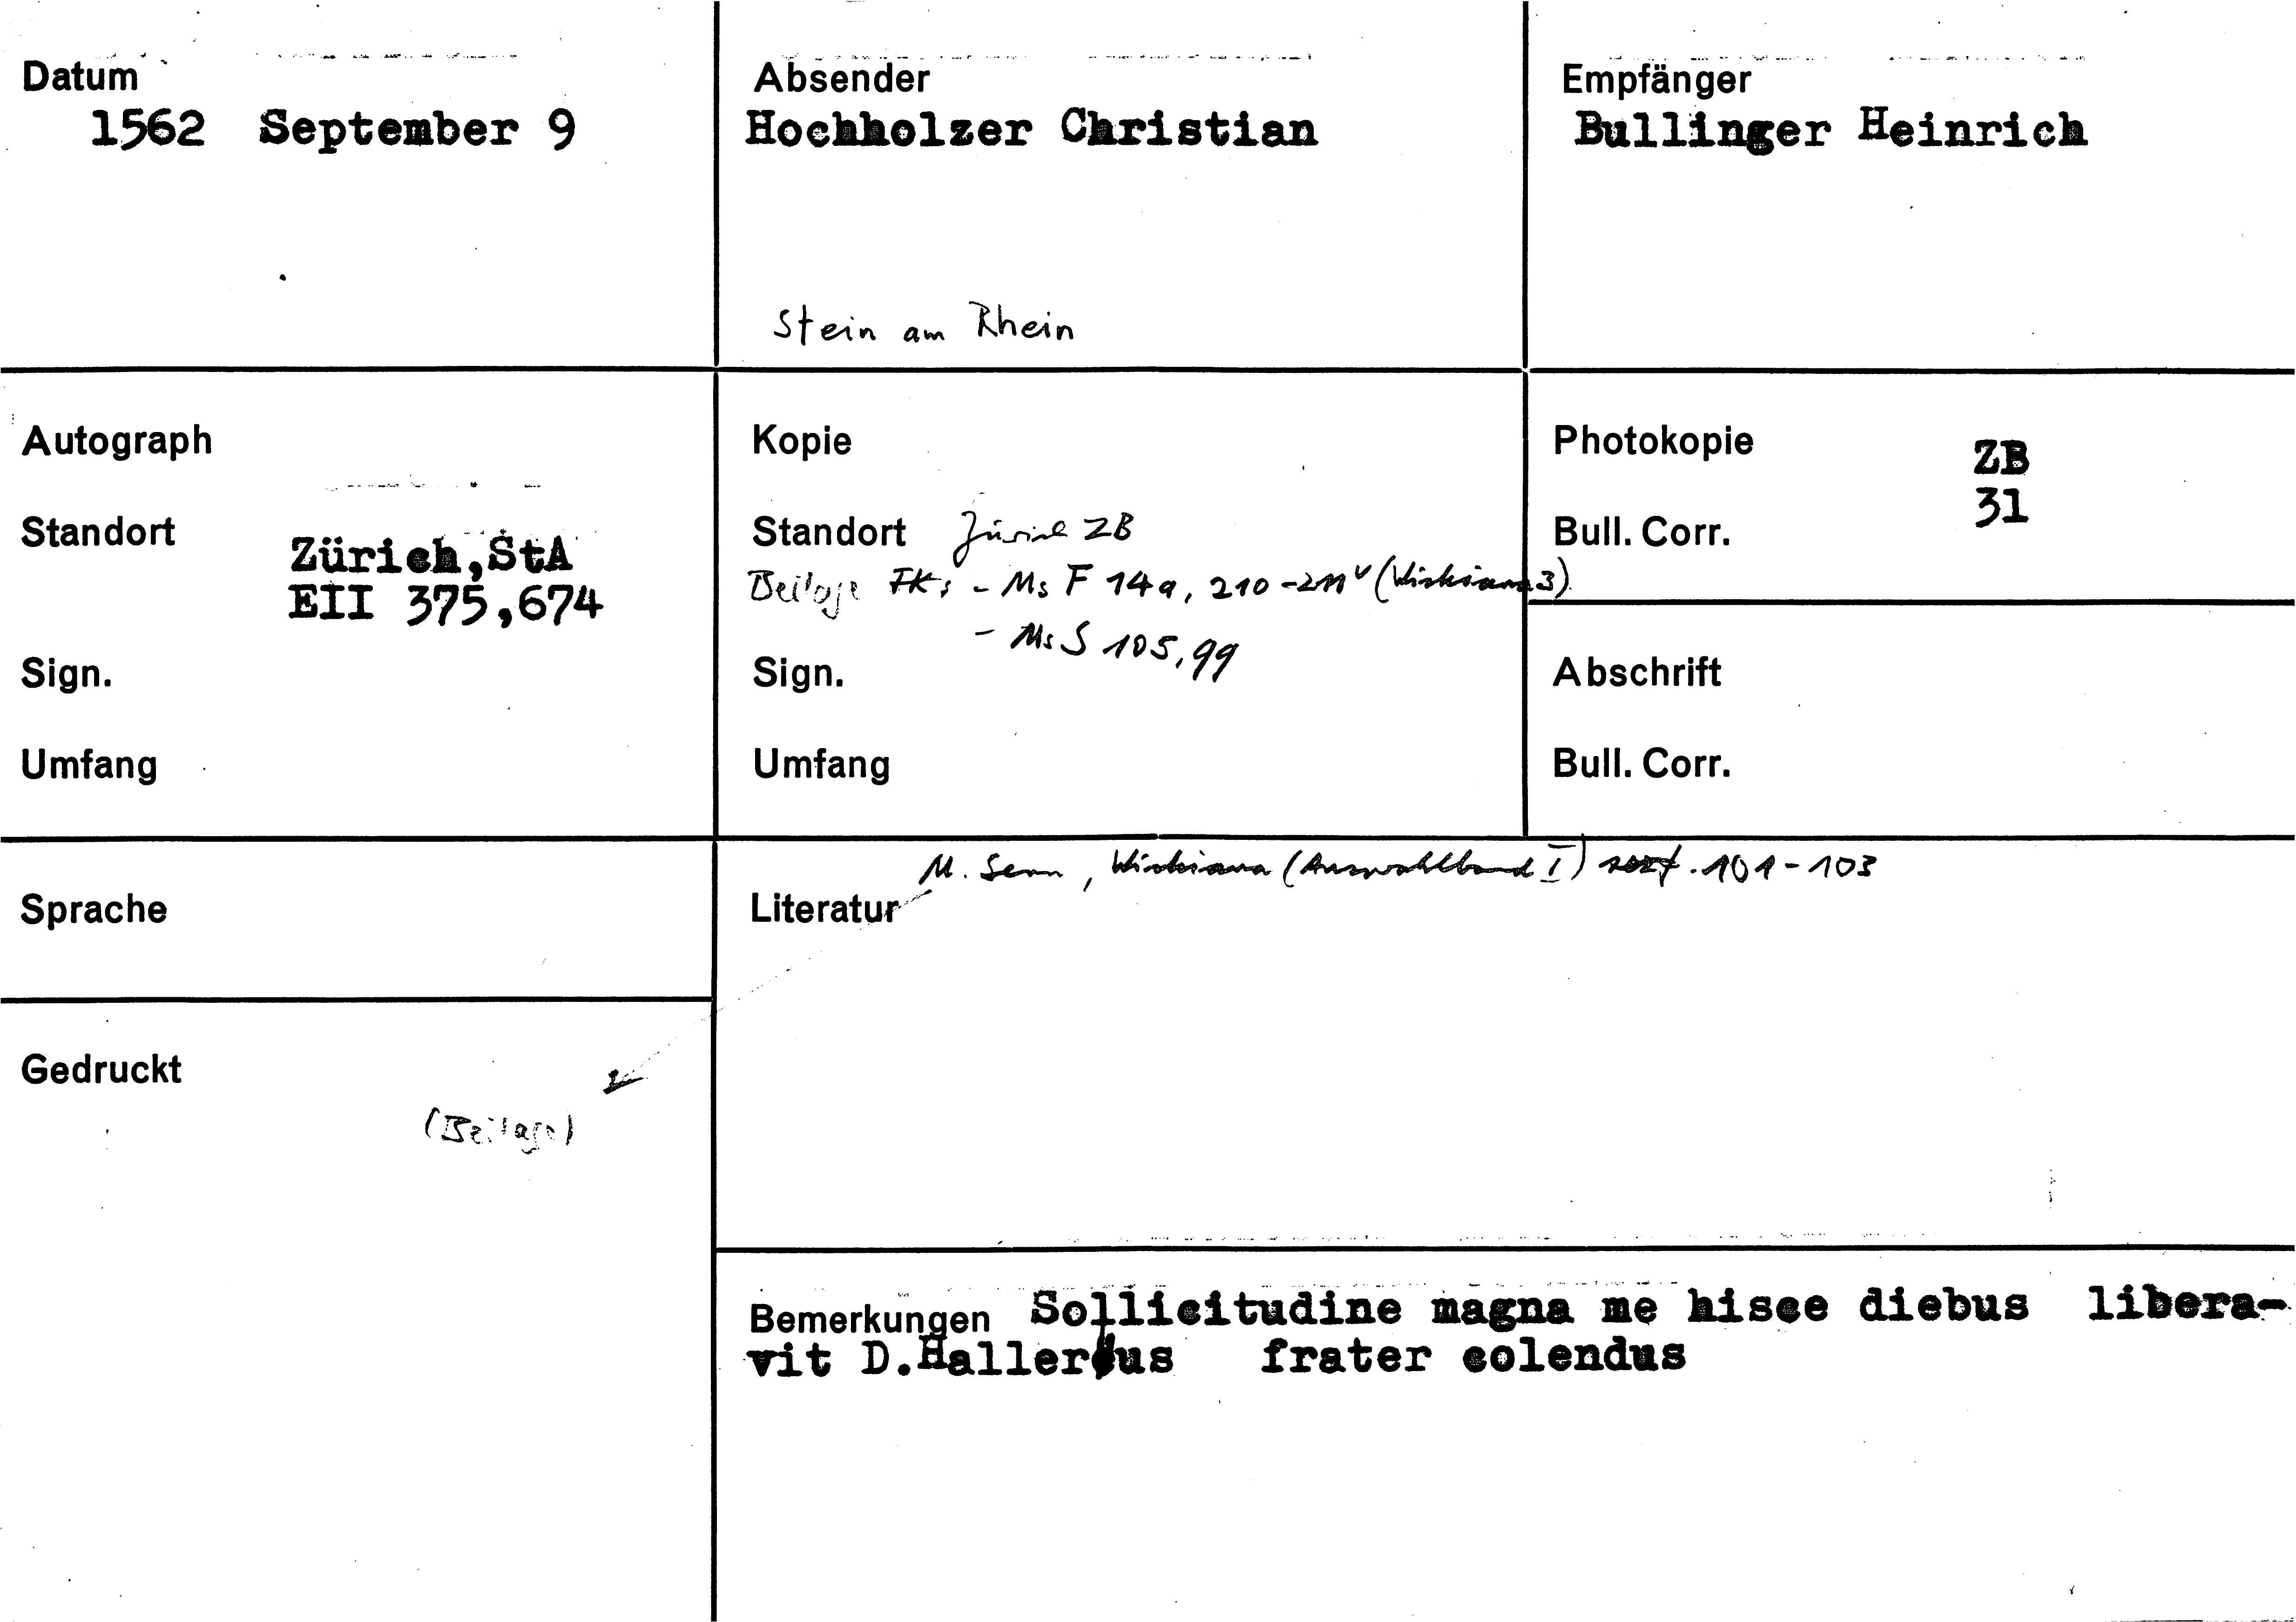 Datum
1562 September 9
Absender
Hochholzer Christian
Stein am Rhein
Empfänger
Bullinger Heinrich
Autograph
Standort
Zürich,StA
EII 375,674
Sign.
Umfang
Kopie
Standort Zürich ZB
Beilage - Ms F 14a, 210-211v (Wickiana 3)
- Ms S 105,99
Sign.
Umfang
Photokopie ZB
Bull. Corr. 31
Abschrift
Bull. Corr.
Sprache
Gedruckt
(Beilage)
M. Senn, Wickiana (Auswahlband I) 101-103
Literatur
Bemerkungen Sollicitudine magna me hisce diebus libera-
vit D.Hallerus frater colendus